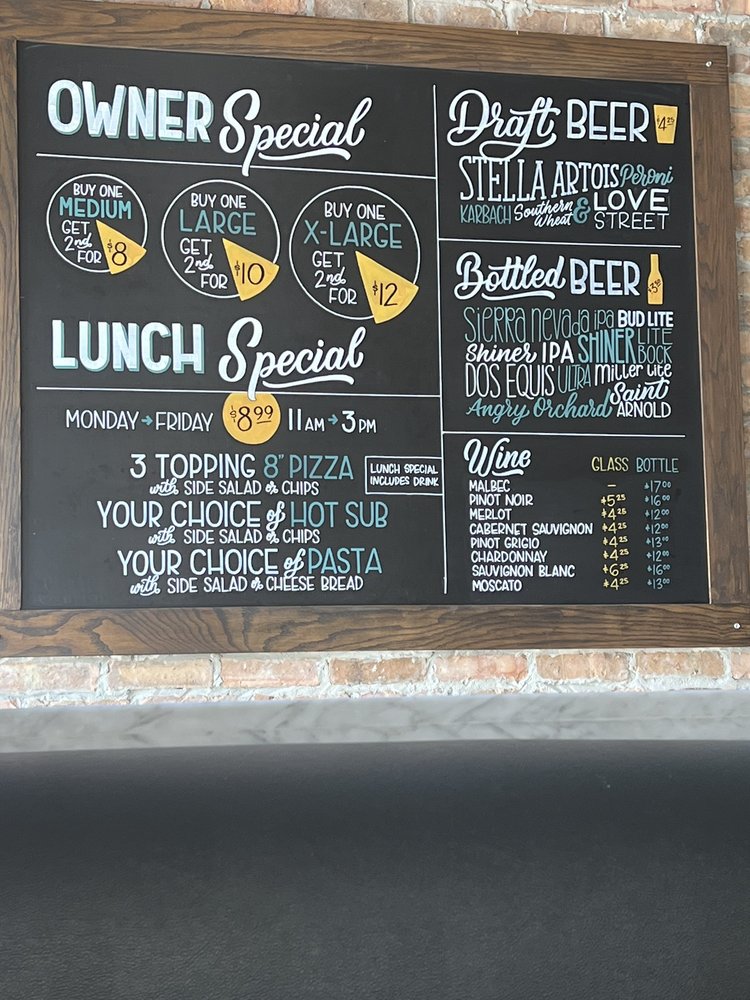 OWNER Special
BUY ONE
MEDIUM
GET
2nd
FOR $8
BUY ONE
LARGE
GET
2nd
FOR $10
BUY ONE
X-LARGE
GET
2nd
FOR $12
LUNCH Special
MONDAY → FRIDAY $8.99 11AM → 3PM
3 TOPPING 8" PIZZA
with SIDE SALAD or CHIPS
LUNCH SPECIAL
INCLUDES DRINK
YOUR CHOICE of HOT SUB
with SIDE SALAD or CHIPS
YOUR CHOICE of PASTA
with SIDE SALAD or CHEESE BREAD
Draft BEER $4.25
STELLA ARTOIS Peroni
KARBACH Southern Wheat & LOVE STREET
Bottled BEER
Sierra Nevada ipa BUD LITE
Shiner IPA SHINER LITE BOCK
DOS EQUIS ULTRA Miller Lite
Angry Orchard Saint ARNOLD
Wine GLASS BOTTLE
MALBEC – $17.00
PINOT NOIR $5.25 $16.00
MERLOT $4.25 $12.00
CABERNET SAUVIGNON $4.25 $12.00
PINOT GRIGIO $4.25
CHARDONNAY $4.25 $12.00
SAUVIGNON BLANC $6.25 $16.00
MOSCATO $4.25 $13.00